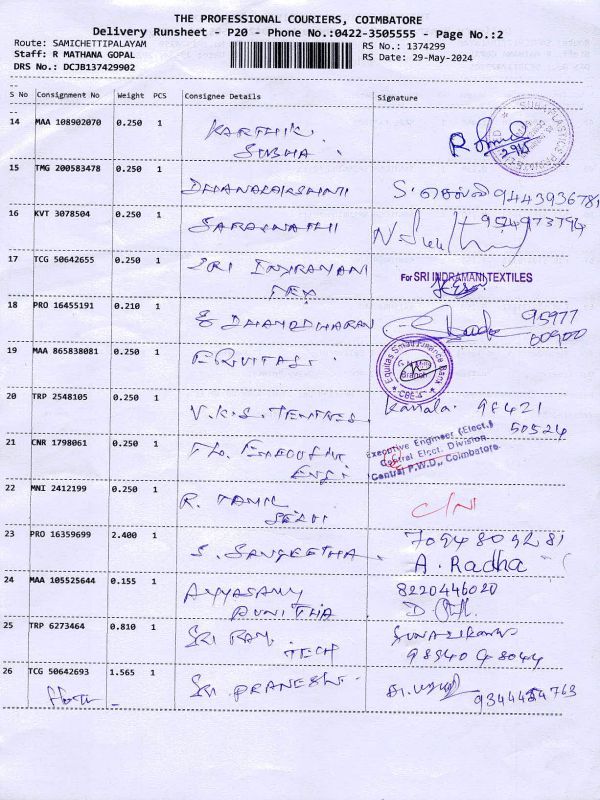 THE PROFESSIONAL COURIERS, COIMBATORE
Delivery Runsheet - P20 - Phone No.:0422-3505555 - Page No.:2
Route: SAMICHETTIPALAYAM
RS No.: 1374299
Staff: R MATHANA GOPAL
RS Date: 29-May-2024
DRS No.: DCJB137429902
S No Consignment No Weight PCS Consignee Details Signature
14 MAA 108902070 0.250 1 KARTHIK
SUBHA
15 TMG 200583478 0.250 1 DHANALAKSHMI S. செல்வி 9443936781
16 KVT 3078504 0.250 1
17 TCG 50642655 0.250 1 SRI INDRAMANI
TEX
For SRI INDRAMANI TEXTILES
18 PRO 16455191 0.210 1 DHAMODHARAN 95977
00900
19 MAA 865838081 0.250 1 EQUITAS
Equitas Small Finance Bank
Branch
CBE
20 TRP 2548105 0.250 1 V.K.S. Kamala. 98421
50524
21 CNR 1798061 0.250 1 EXECUTIVE
ENGI
Executive Engineer (Elect.)
Central Elect. Division
Central P.W.D., Coimbatore.
22 MNI 2412199 0.250 1 R. TAMIL
SELVI
C/N
23 PRO 16359699 2.400 1 S. SANGEETHA 7094809281
A. Radha
24 MAA 105525644 0.155 1 AYYASAMY
PUNITHA
8220446020
25 TRP 6273464 0.810 1 SRI RAM
TECH
98940 48044
26 TCG 50642693 1.565 1 SRI PRANESH 9344454763